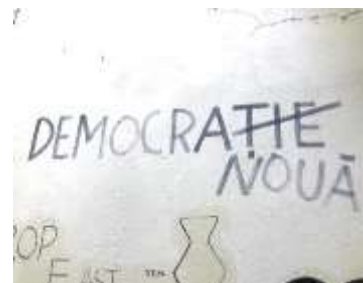 DEMOCRAȚIE
NOUĂ
ROP
EAST